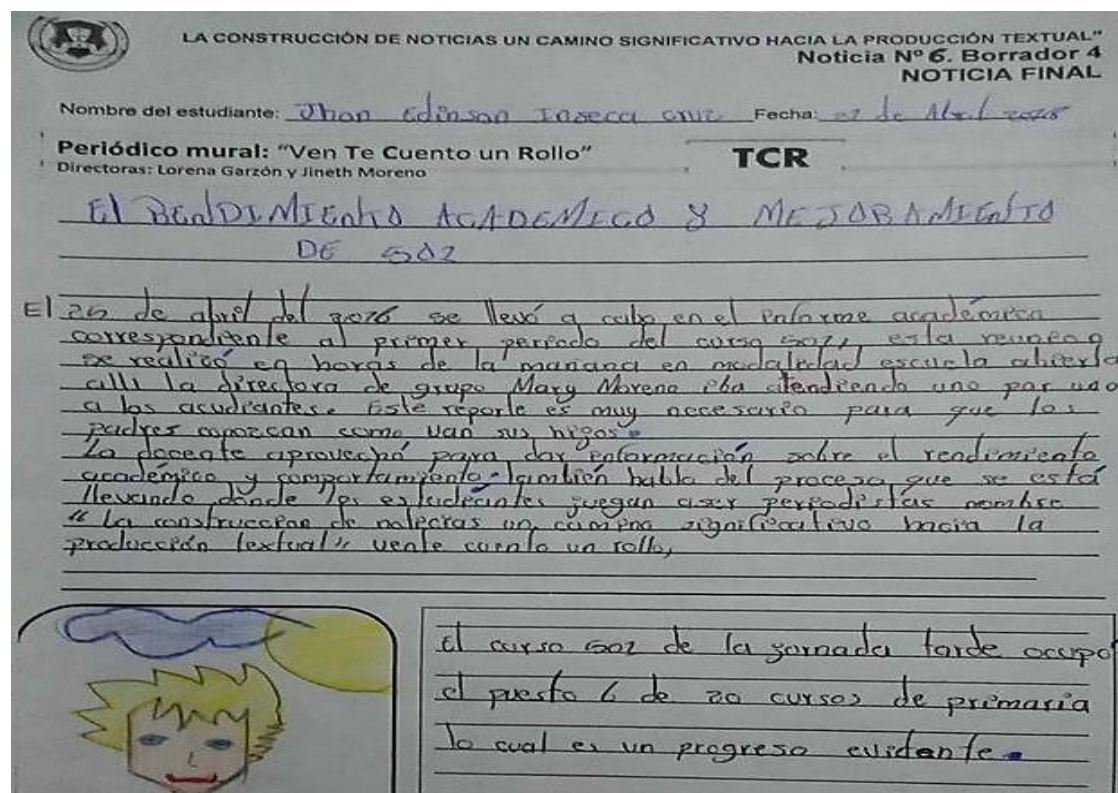 LA CONSTRUCCIÓN DE NOTICIAS UN CAMINO SIGNIFICATIVO HACIA LA PRODUCCIÓN TEXTUAL"
Noticia Nº 6. Borrador 4
NOTICIA FINAL
Nombre del estudiante: Jhan Edinson Inseca cruz Fecha: de Abril
Periódico mural: "Ven Te Cuento un Rollo"
TCR
Directoras: Lorena Garzón y Jineth Moreno
El RENDIMIENTO ACADEMICO Y MEJORAMIENTO
DE 502
El 25 de abril del 2016 se llevó a cabo en el informe académico
correspondiente al primer periodo del curso 502, esta reunion
se realizó en horas de la mañana en modalidad escuela abierta
alli la directora de grupo Mary Moreno iba atendiendo uno por uno
a los acudiantes. Este reporte es muy necesario para que los
padres conozcan como van sus higos.
La docente aprovechó para dar información sobre el rendimiento
académico y comportamiento. también habla del proceso que se está
llevando dónde los estudiantes juegan aser periodistas nombre
"La construccion de noticias un camino significativo hacia la
producción textual" vente cuento un rollo,
El curso 502 de la jornada tarde ocupo
el puesto 6 de 20 cursos de primaria
lo cual es un progreso evidente.